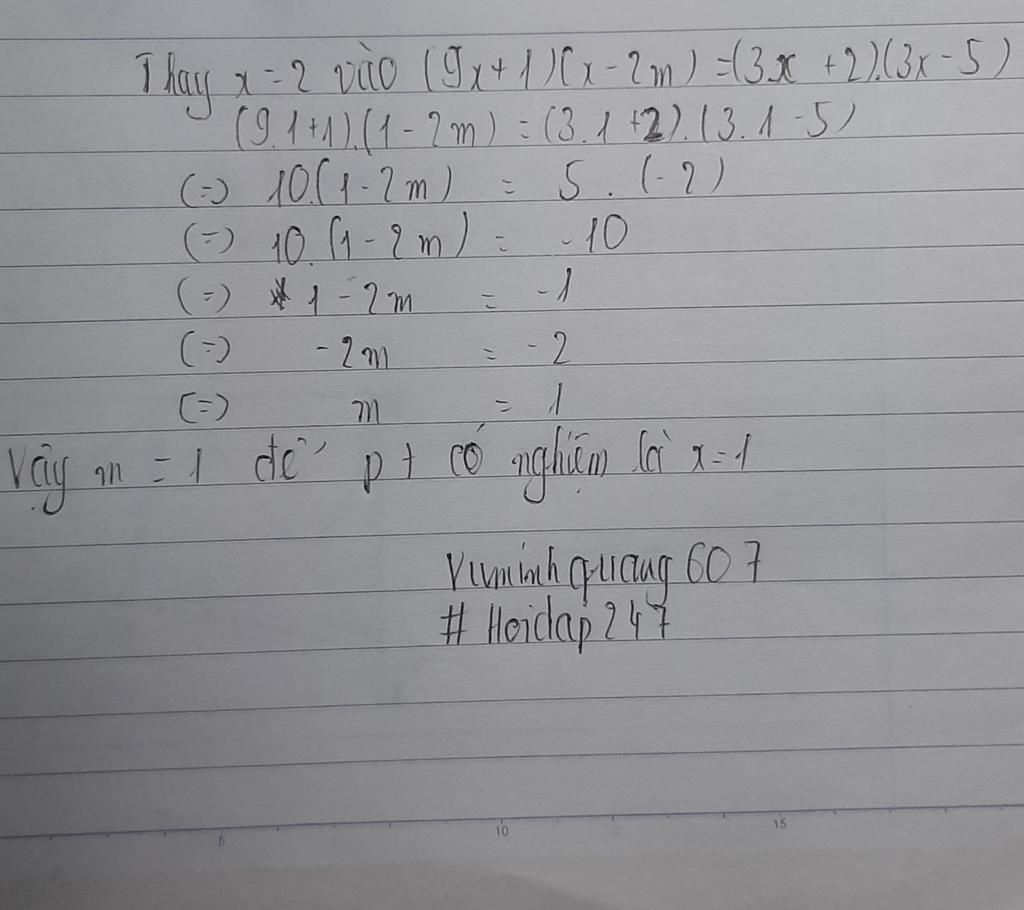 Thay x = 2 vào (9x + 1)(x - 2m) = (3x + 2).(3x - 5)
(9.1+1).(1 - 2m) = (3.1 +2).(3.1 - 5)
(=) 10.(1 - 2m) = 5 . (-2)
(=) 10.(1 - 2m) = -10
(=) 1 - 2m = -1
(=) -2m = -2
(=) m = 1
Vậy m = 1 để pt có nghiệm là x = 1
Vuminhquang607
# Hoidap247
5 10 15